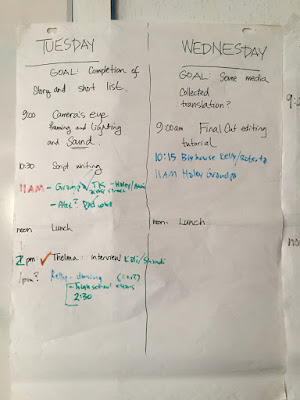 TUESDAY
GOAL: Completion of
Story and short list.
9:00 Camera's eye
framing and lighting
and Sound.
10:30 Script writing
11AM - Grampa
- Alec?
noon Lunch
pm: ✓ Thelma: Interview
1pm? Kelly - dancing
- Tulugh school
2:30
WEDNESDAY
GOAL: Some media
collected
translation?
9:00am Final Cut editing
tutorial
10:15 Birdhouse Kelly/Roberta
11AM Haley Grandpa
noon: Lunch